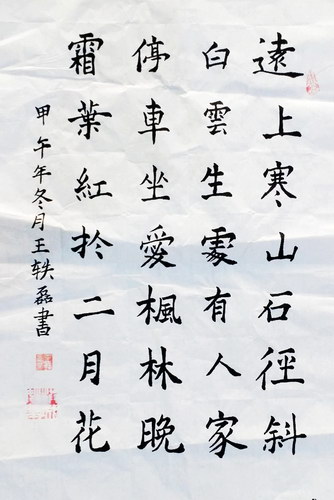 遠上寒山石徑斜
白雲生處有人家
停車坐愛楓林晚
霜葉紅於二月花
甲午年冬月王轶磊書